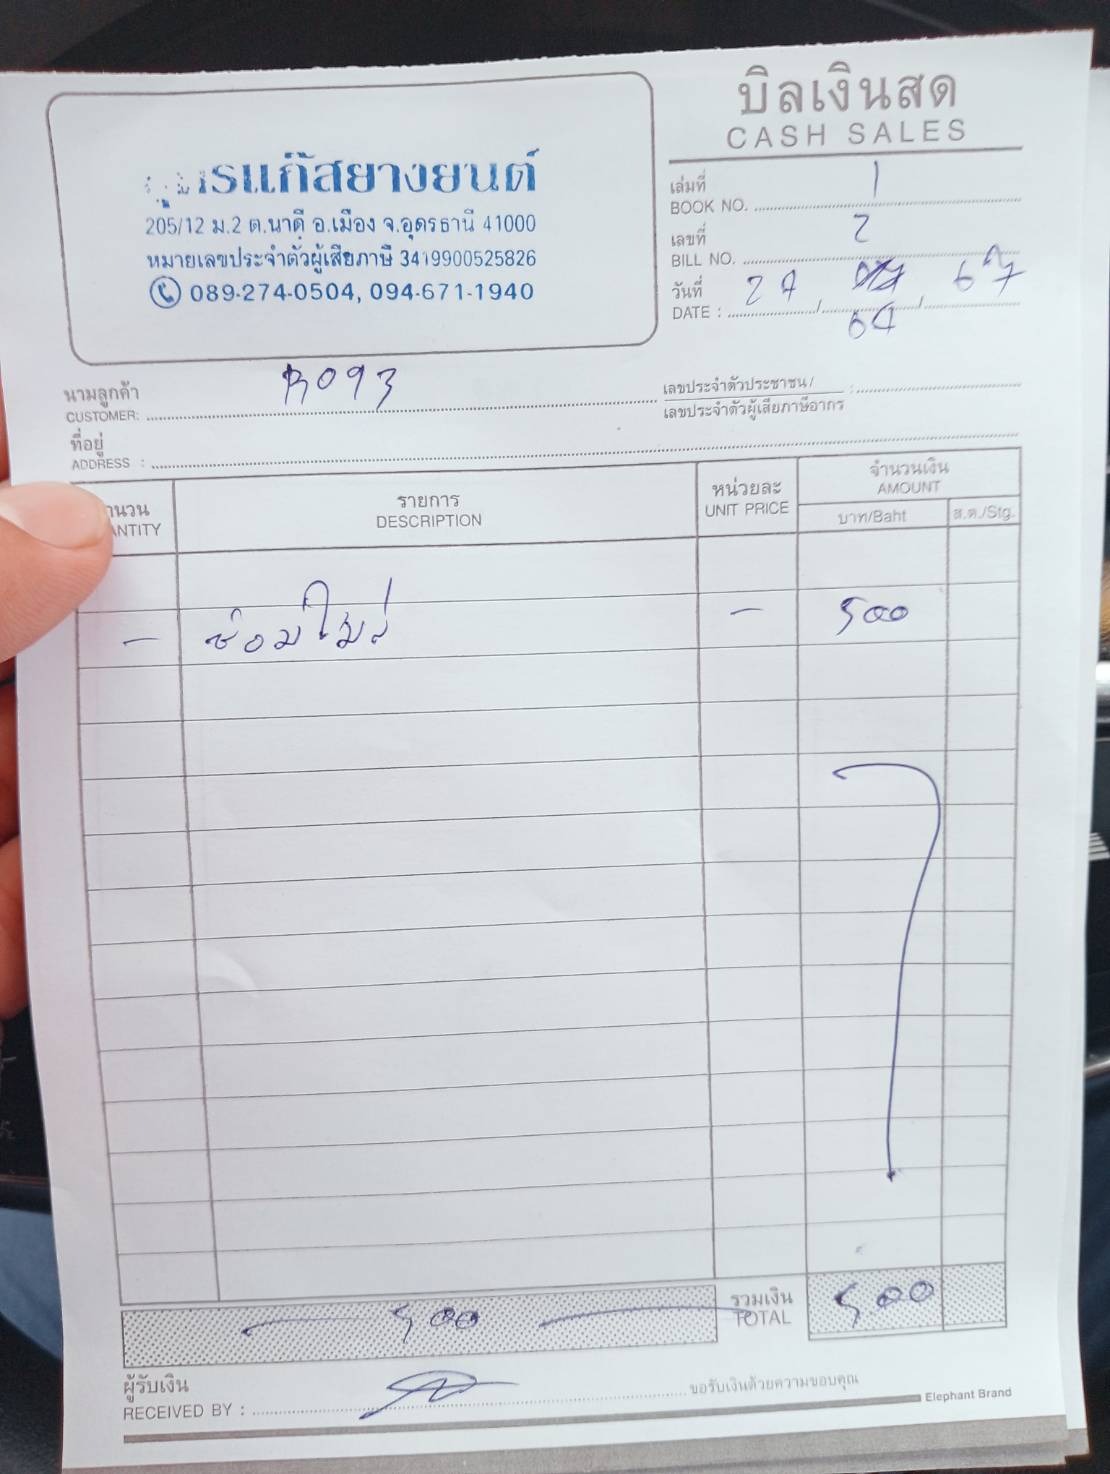 บิลเงินสด
CASH SALES
รแก๊สยางยนต์
205/12 ม.2 ต.นาดี อ.เมือง จ.อุดรธานี 41000
หมายเลขประจำตัวผู้เสียภาษี 3419900525826
089-274-0504, 094-671-1940
เล่มที่
BOOK NO. 1
เลขที่
BILL NO. 2
วันที่
DATE : 27 / 04 / 67
นามลูกค้า
CUSTOMER: R093
เลขประจำตัวประชาชน/
เลขประจำตัวผู้เสียภาษีอากร :
ที่อยู่
ADDRESS :
จำนวน รายการ หน่วยละ จำนวนเงิน
QUANTITY DESCRIPTION UNIT PRICE AMOUNT
บาท/Baht ส.ต./Stg.
- ซ่อม - 500
500 รวมเงิน 500
TOTAL
ผู้รับเงิน
RECEIVED BY :
ขอรับเงินด้วยความขอบคุณ
Elephant Brand